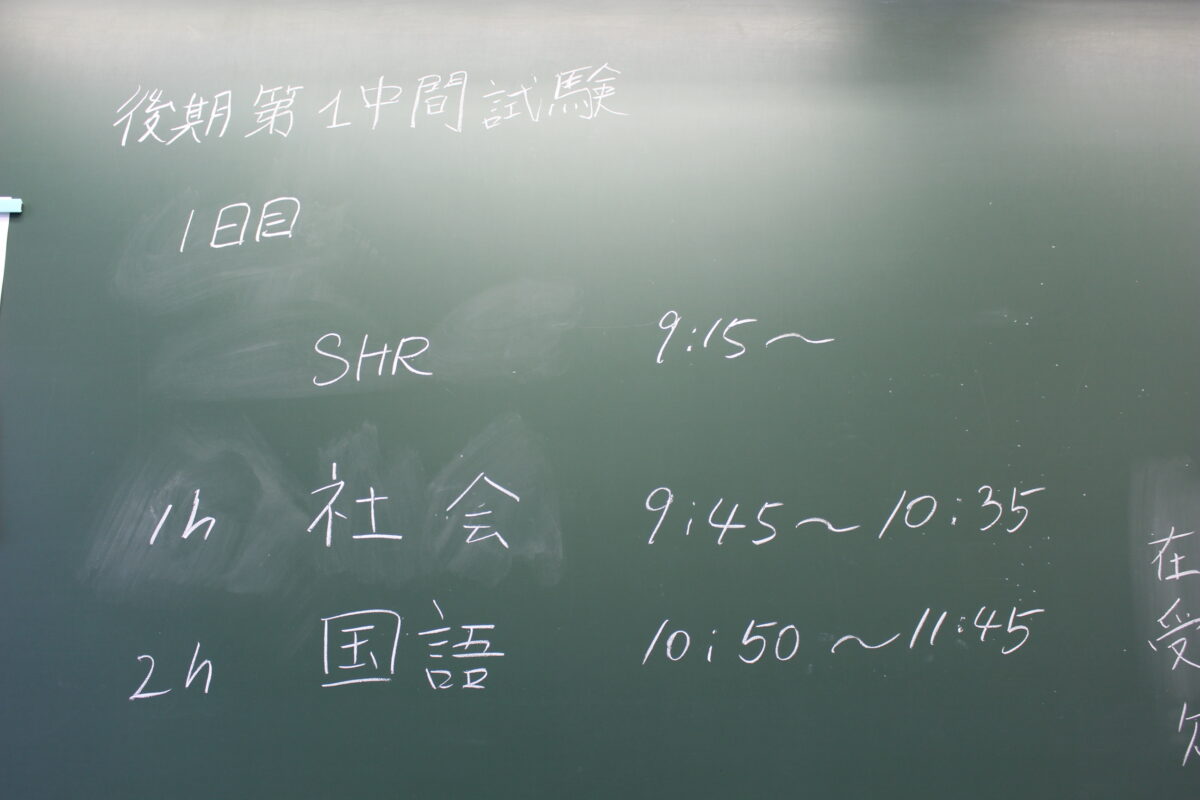 後期第1中間試験
1日目
SHR 9:15～
1h 社会 9:45～10:35
2h 国語 10:50～11:45
在
受